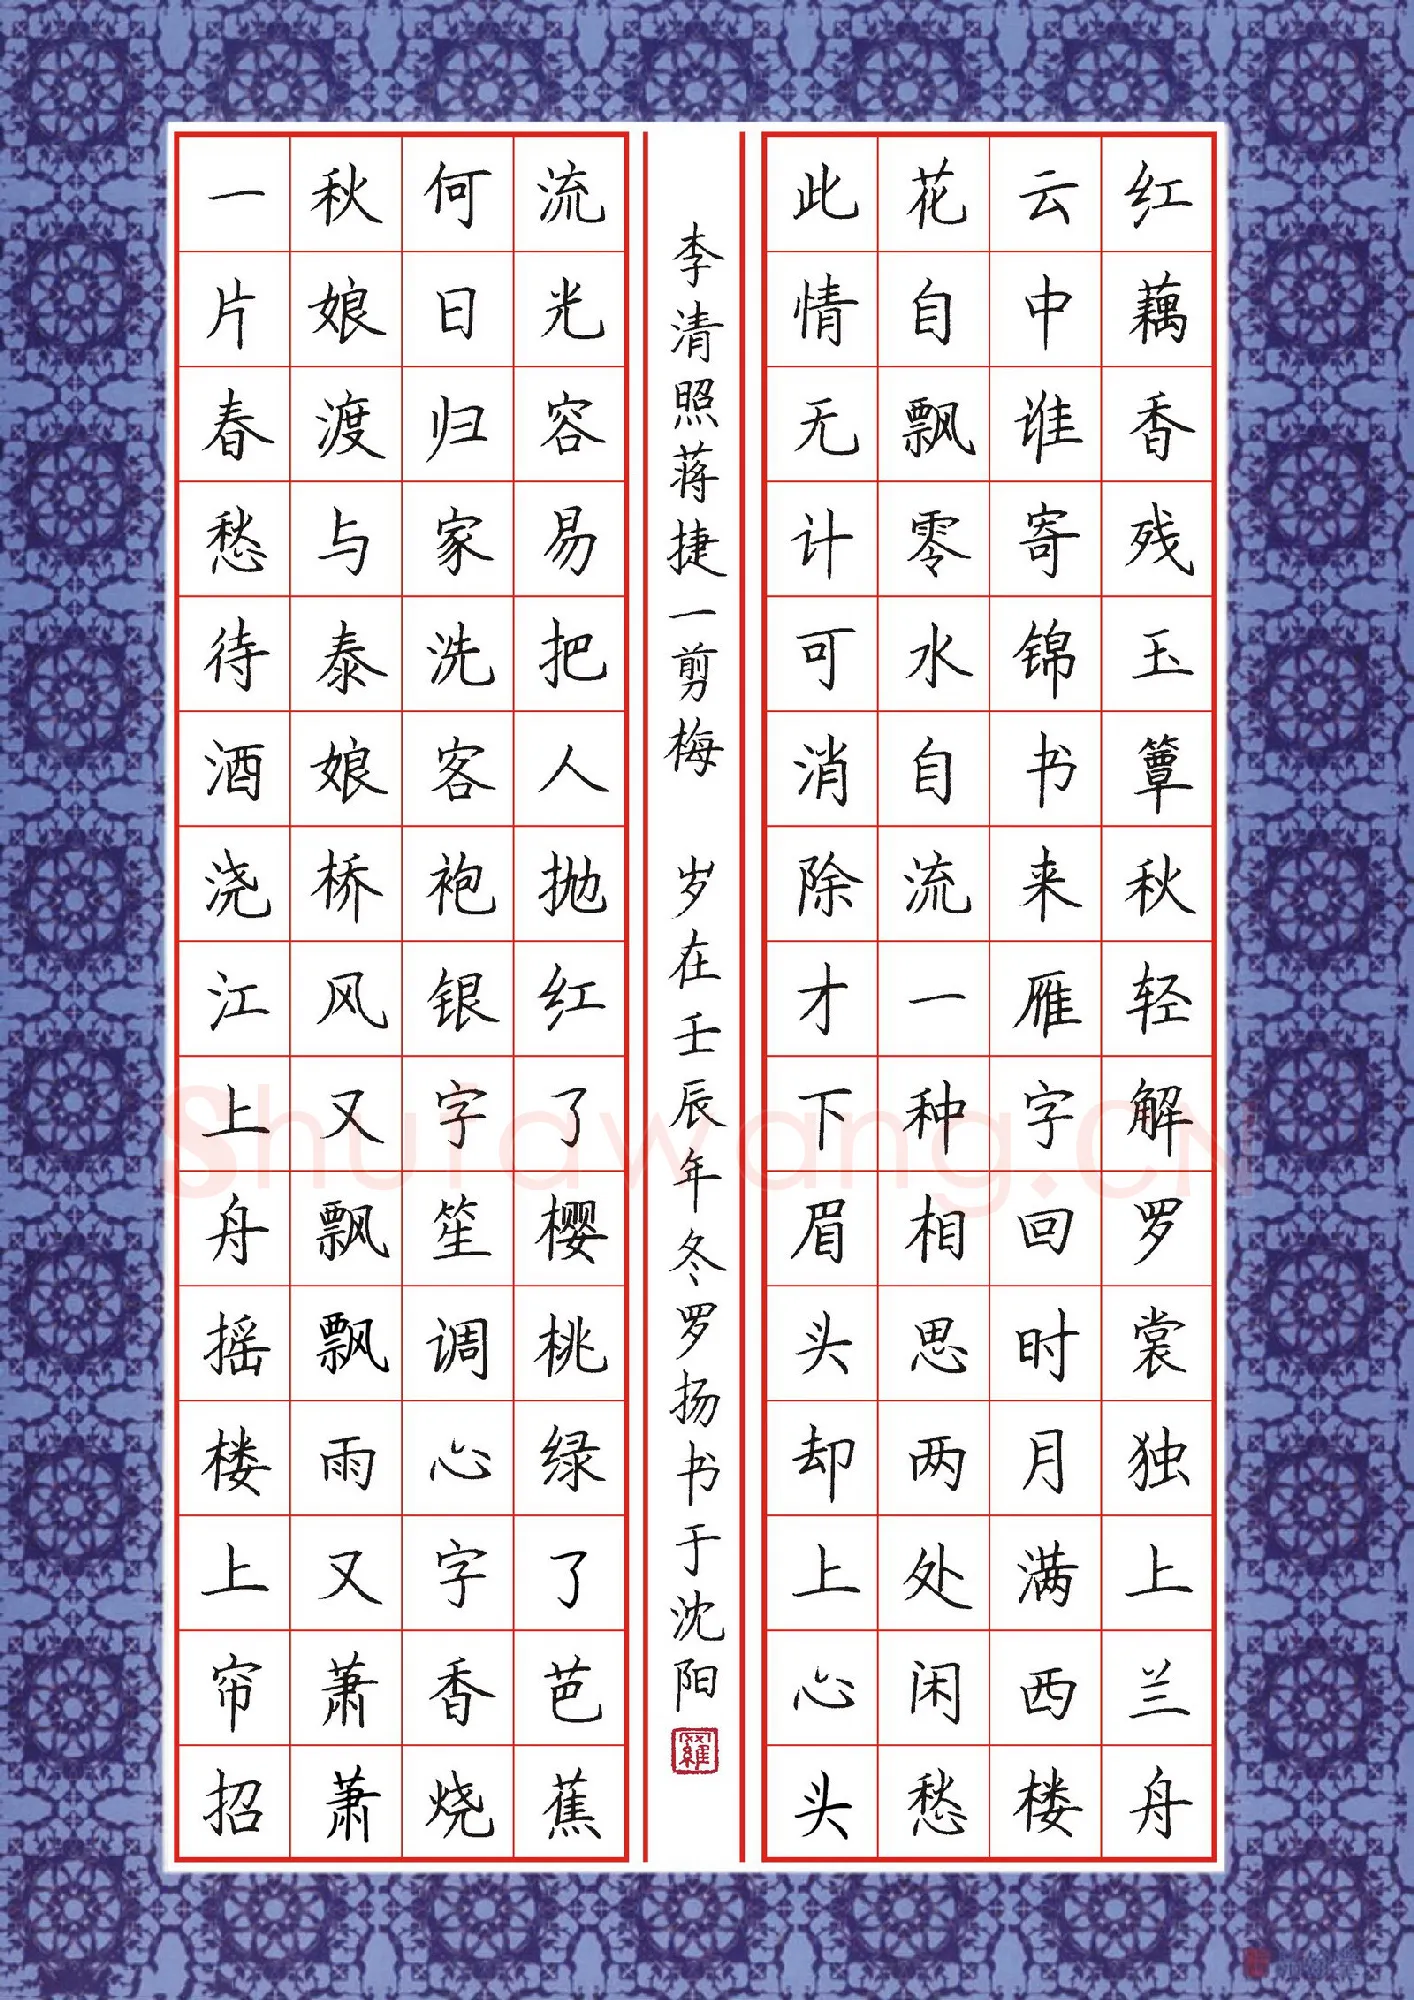 红藕香残玉簟秋轻解罗裳独上兰舟
云中谁寄锦书来雁字回时月满西楼
花自飘零水自流一种相思两处闲愁
此情无计可消除才下眉头却上心头
一片春愁待酒浇江上舟摇楼上帘招
秋娘渡与泰娘桥风又飘飘雨又萧萧
何日归家洗客袍银字笙调心字香烧
流光容易把人抛红了樱桃绿了芭蕉
李清照蒋捷一剪梅 岁在壬辰年冬罗扬书于沈阳
羅
Shufawang.CN